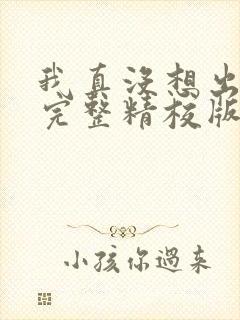 我真没想出
完整精校版
小孩你過来